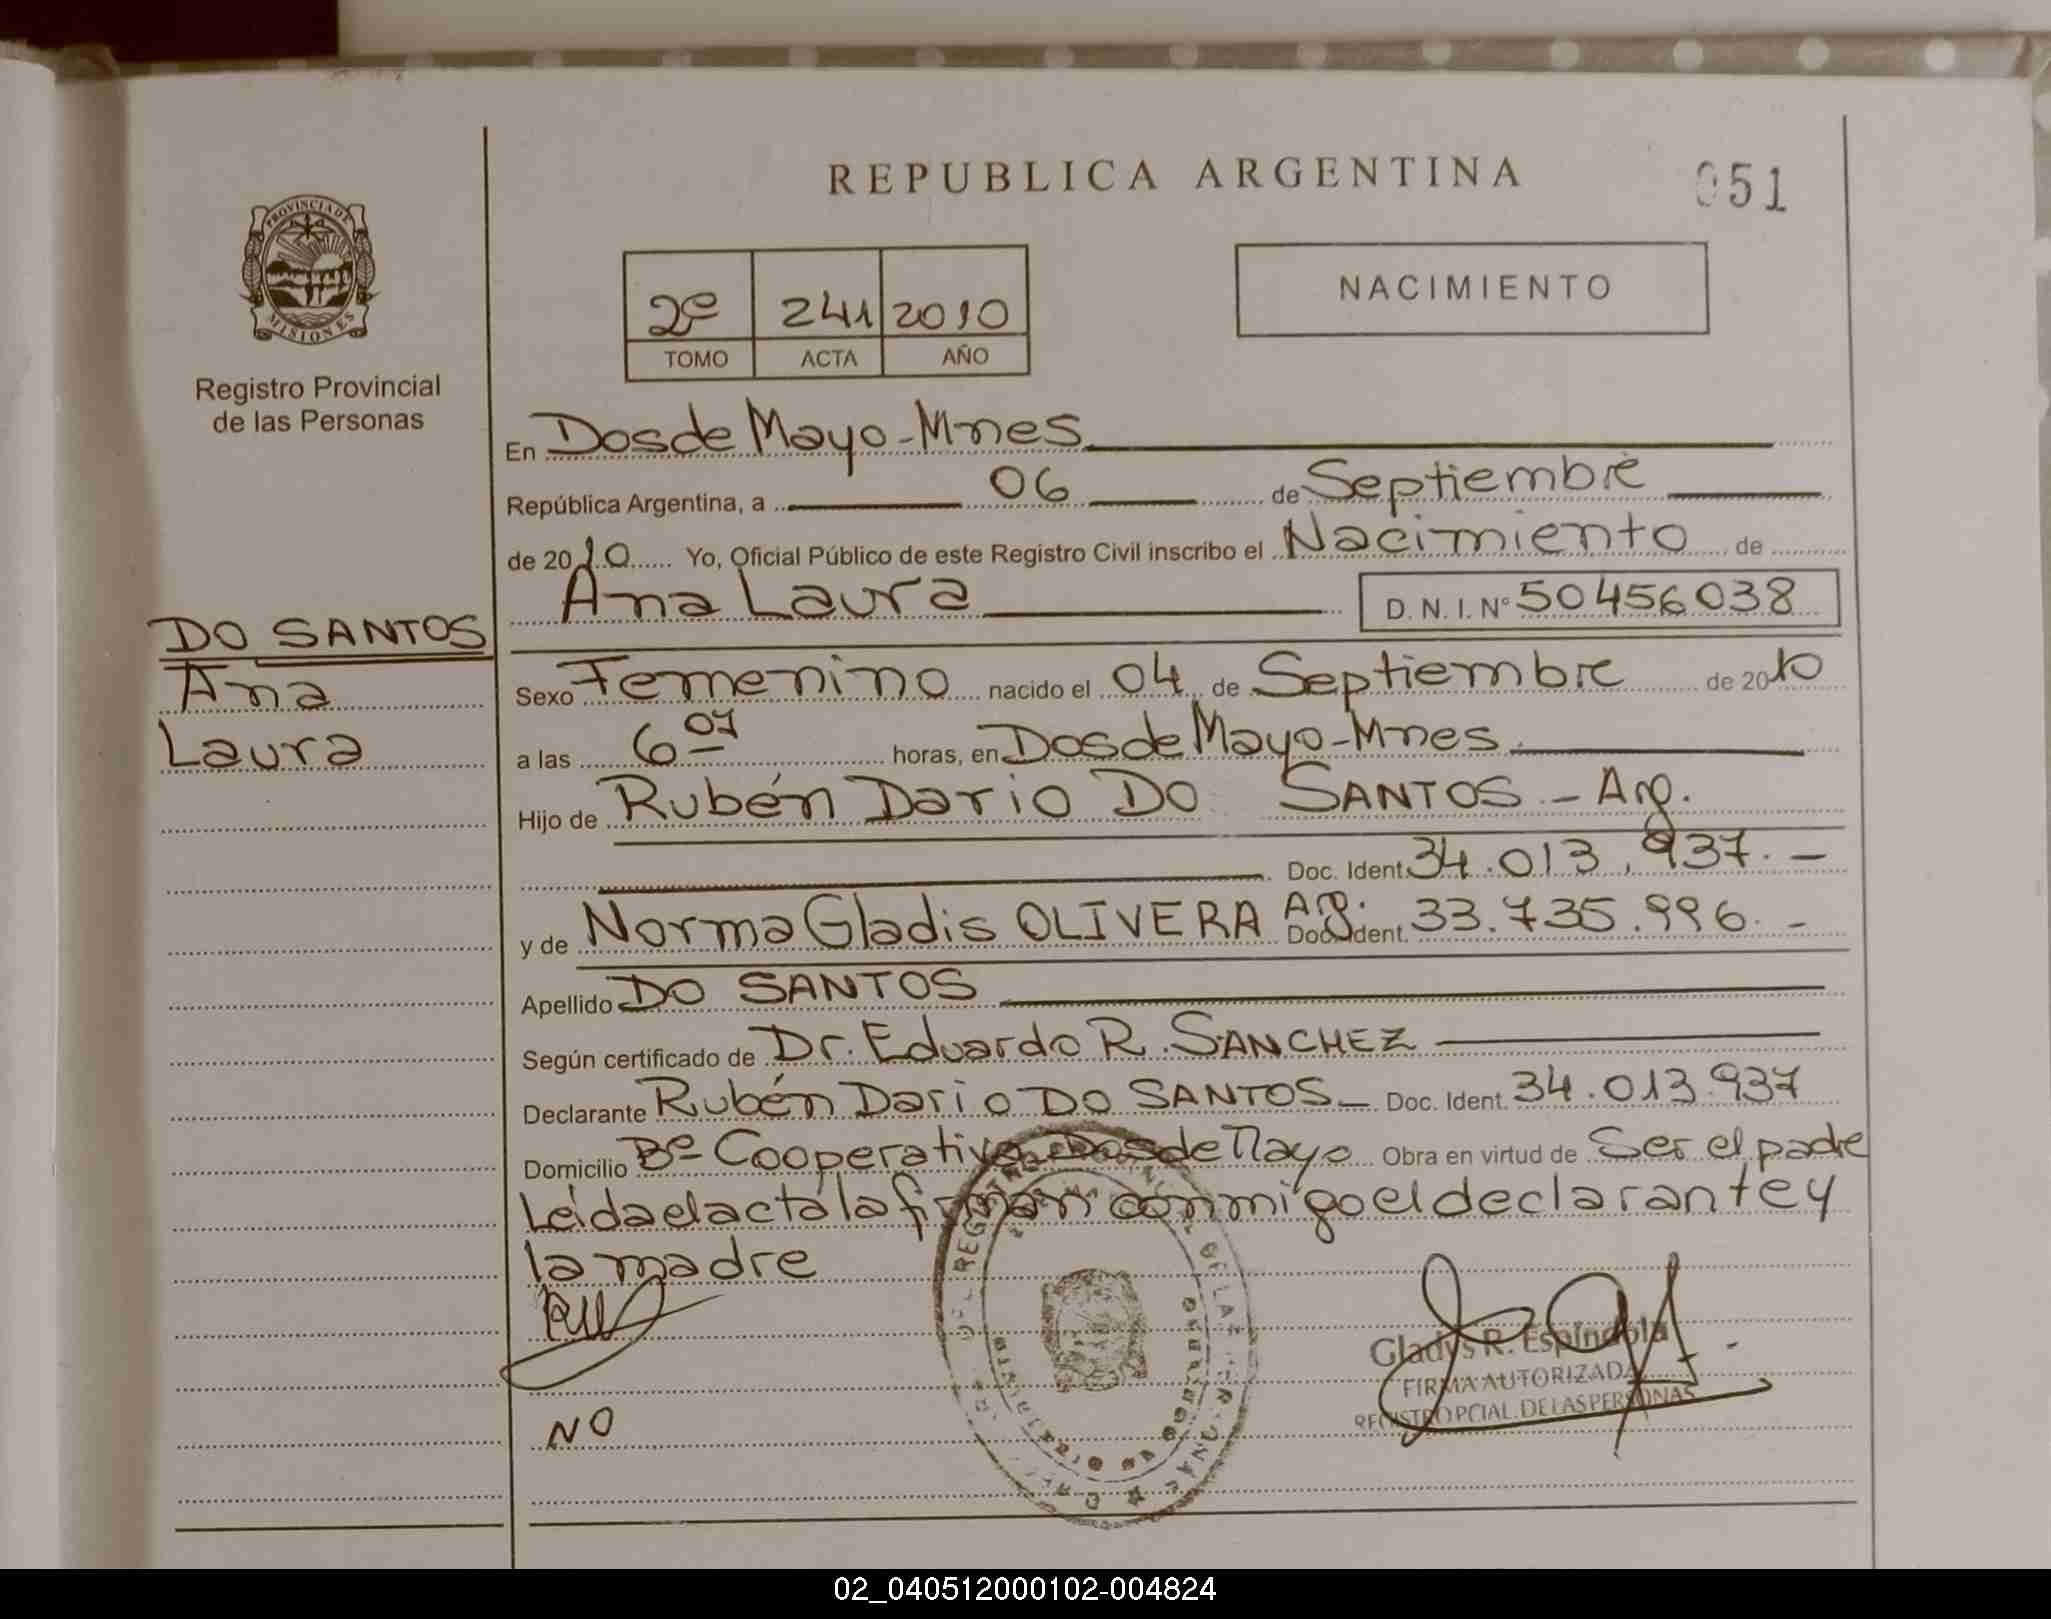 REPUBLICA ARGENTINA
051
PROVINCIA DE
MISIONES
Registro Provincial
de las Personas
2º 241 2010
TOMO ACTA AÑO
NACIMIENTO
En Dos de Mayo-Mnes
República Argentina, a 06 de Septiembre
de 2010 Yo, Oficial Público de este Registro Civil inscribo el Nacimiento de
Ana Laura D. N. I. Nº 50456038
DO SANTOS
Ana
Laura
Sexo Femenino nacido el 04 de Septiembre de 2010
a las 6 07 horas, en Dos de Mayo-Mnes
Hijo de Rubén Dario DO SANTOS - Arg.
Doc. Ident. 34.013.937.-
y de Norma Gladis OLIVERA Arg. Doc. Ident. 33.735.996.-
Apellido DO SANTOS
Según certificado de Dr. Eduardo R. SANCHEZ
Declarante Rubén Dario DO SANTOS- Doc. Ident. 34.013.937
Domicilio Bº Cooperativa Dos de Mayo Obra en virtud de Ser el padre
Leída el acta la firman conmigo el declarante y
la madre
NO
Gladys R. Espíndola
FIRMA AUTORIZADA
REGISTRO PCIAL. DE LAS PERSONAS
02_040512000102-004824